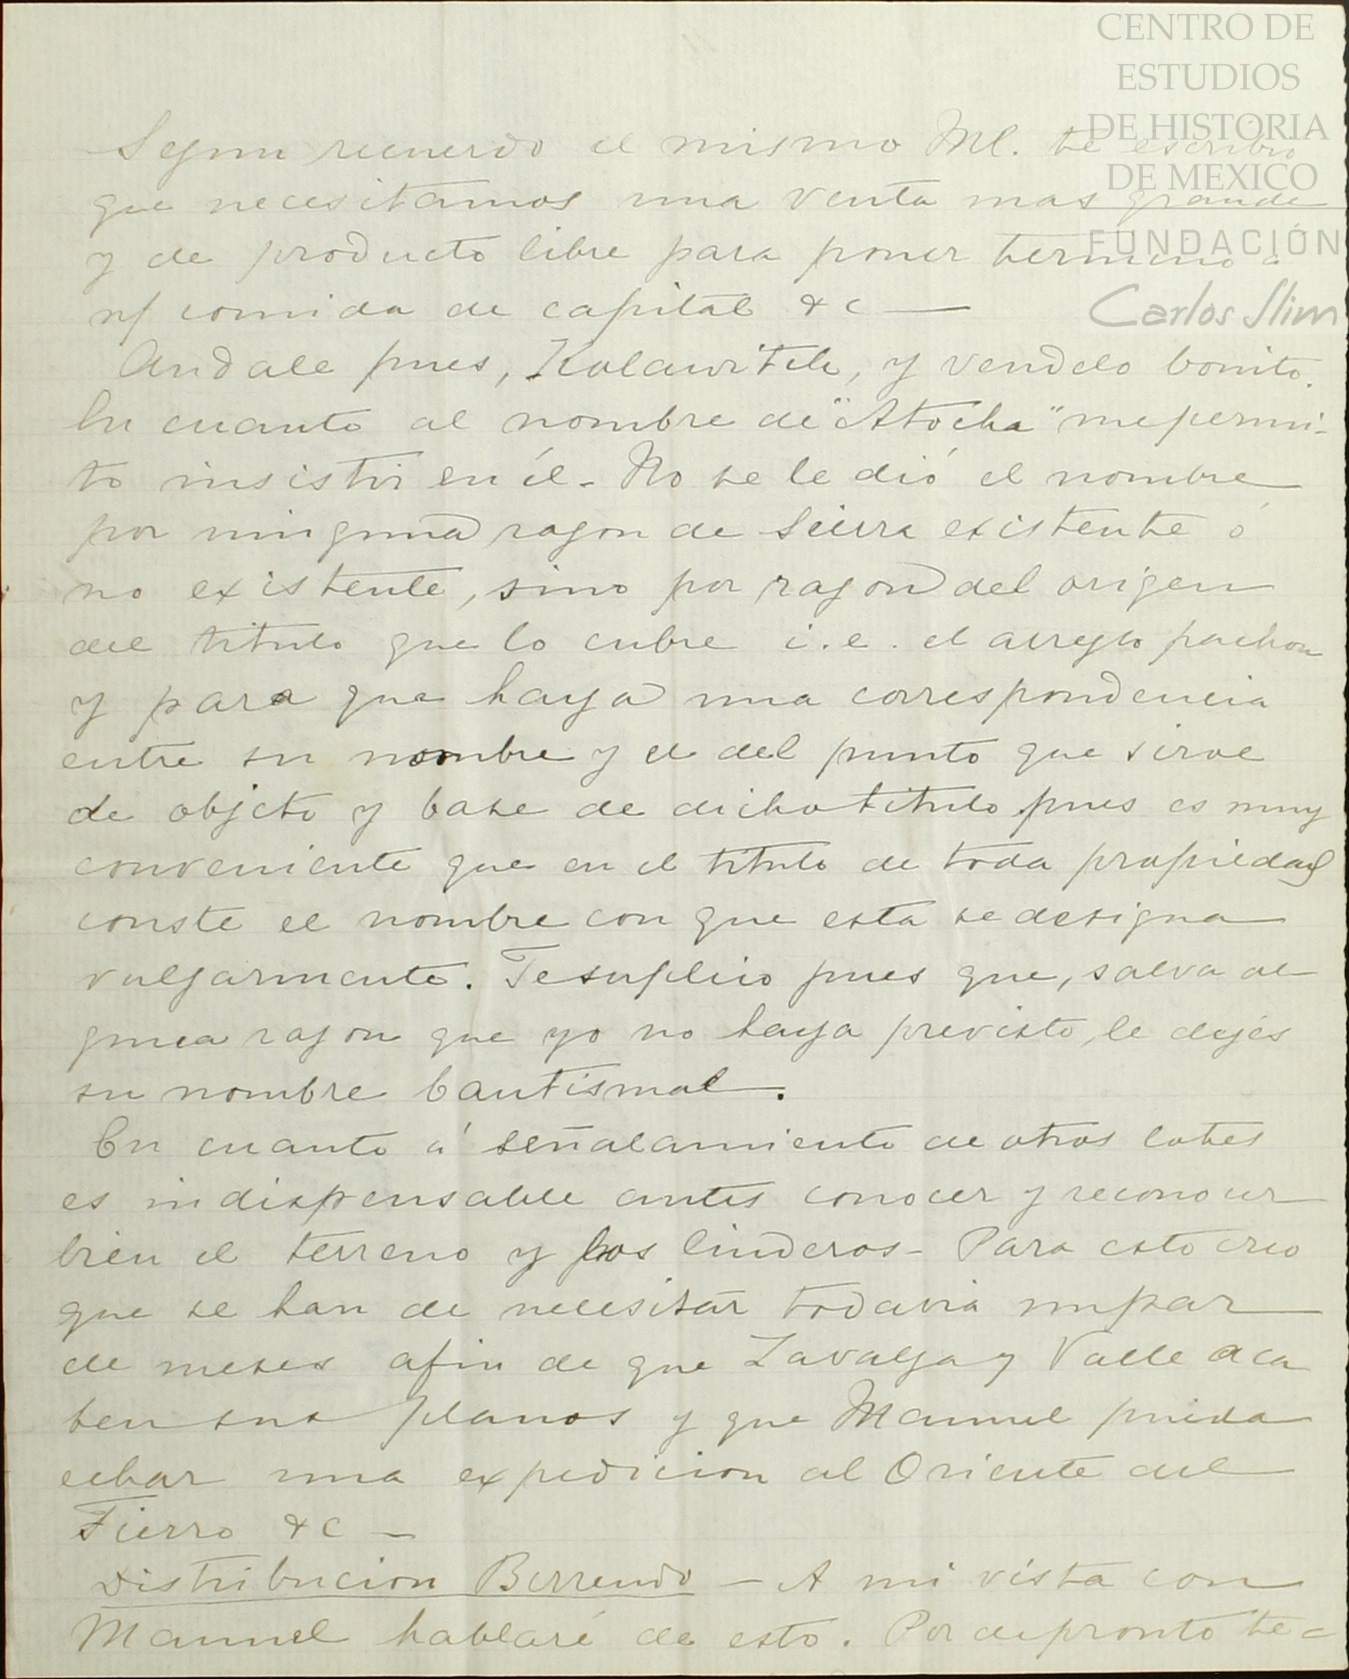 CENTRO DE
ESTUDIOS
DE HISTORIA
DE MEXICO
FUNDACIÓN
Carlos Slim
Segun recuerdo el mismo Ml. te escribio
que necesitamos una venta mas grande
y de producto libre para poner termino a
n/ comida de capital &c —
Andale pues, y vendelo bonito.
En cuanto al nombre de "Atocha" me permi-
to insistir en él - No se le dió el nombre
por ninguna razon de Sierra existente ó
no existente, sino por razon del origen
del titulo que lo cubre i.e. el arreglo
y para que haya una correspondencia
entre su nombre y el del punto que sirve
de objeto y base de dicho titulo pues es muy
conveniente que en el titulo de toda propiedad
conste el nombre con que esta se designa
vulgarmente. Te suplico pues que, salva al
guna razon que yo no haya previsto, le dejes
su nombre bautismal.
En cuanto á señalamiento de otros lotes
es indispensable antes conocer y reconocer
bien el terreno y los linderos - Para esto creo
que se han de necesitar todavia un par
de meses afin de que Zavalza y Valle aca
ben sus planos y que Manuel pueda
echar una expedicion al Oriente del
Fierro &c —
Distribucion Berrendo — A mi vista con
Manuel hablaré de esto. Por de pronto te =